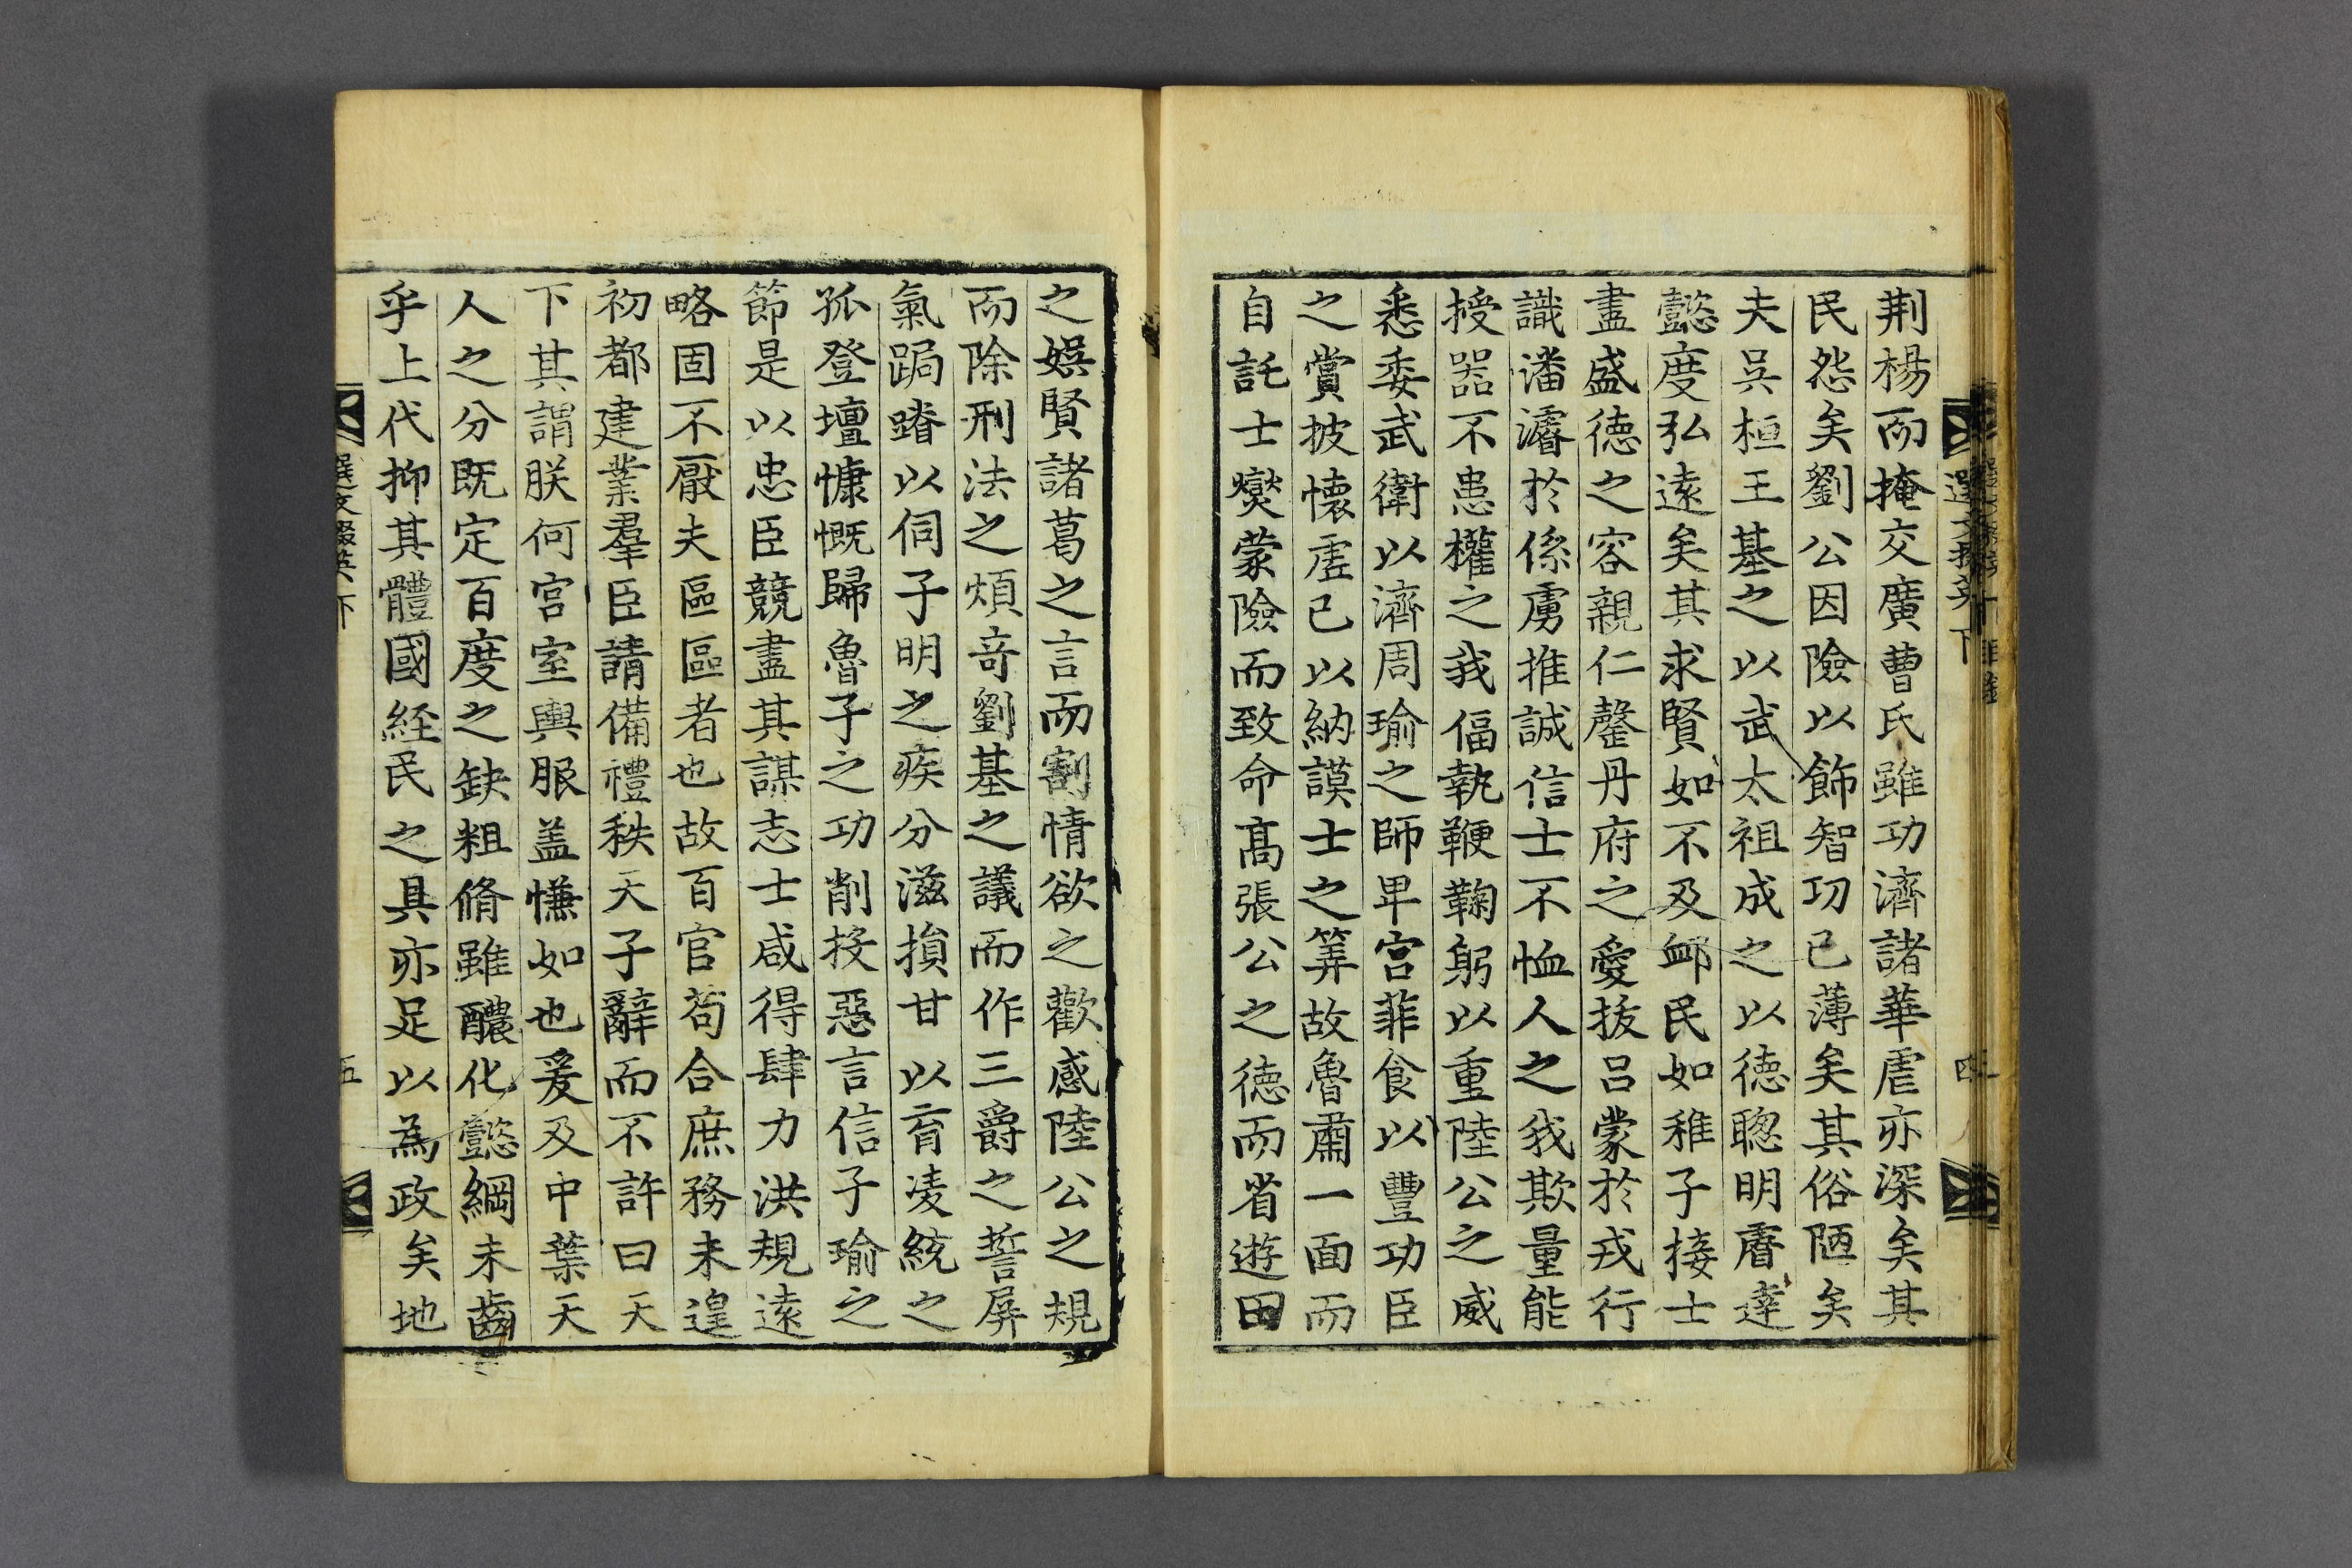 荆楊而掩交廣曹氏雖功濟諸華虐亦深矣其
民怨矣劉公因險以飾智功已薄矣其俗陋矣
夫吳桓王基之以武太祖成之以德聦明睿達
懿度弘逺矣其求賢如不及䘏民如稚子接士
盡盛德之容親仁罄丹府之愛拔吕蒙於戎行
識潘濬於係虜推誠信士不恤人之我欺量能
授器不患權之我偪執鞭鞠躬以重陸公之威
悉委武衛以濟周瑜之師卑宫菲食以豐功臣
之賞披懷虚已以納謨士之筭故魯肅一面而
自託士燮蒙險而致命髙張公之德而省遊田
選文掇英下
四
之娯賢諸葛之言而割情欲之歡感陸公之規
而除刑法之煩竒劉基之議而作三爵之誓屏
氣跼蹐以伺子明之疾分滋損甘以育凌統之
孤登壇慷慨歸魯子之功削投惡言信子瑜之
節是以忠臣競盡其謀志士咸得肆力洪規逺
略固不厭夫區區者也故百官苟合庶務未遑
初都建業羣臣請備禮秩天子辭而不許曰天
下其謂朕何宫室輿服盖慊如也爰及中葉天
人之分既定百度之缺粗脩雖醲化懿綱未齒
乎上代抑其體國経民之具亦足以為政矣地
選文掇英下
五